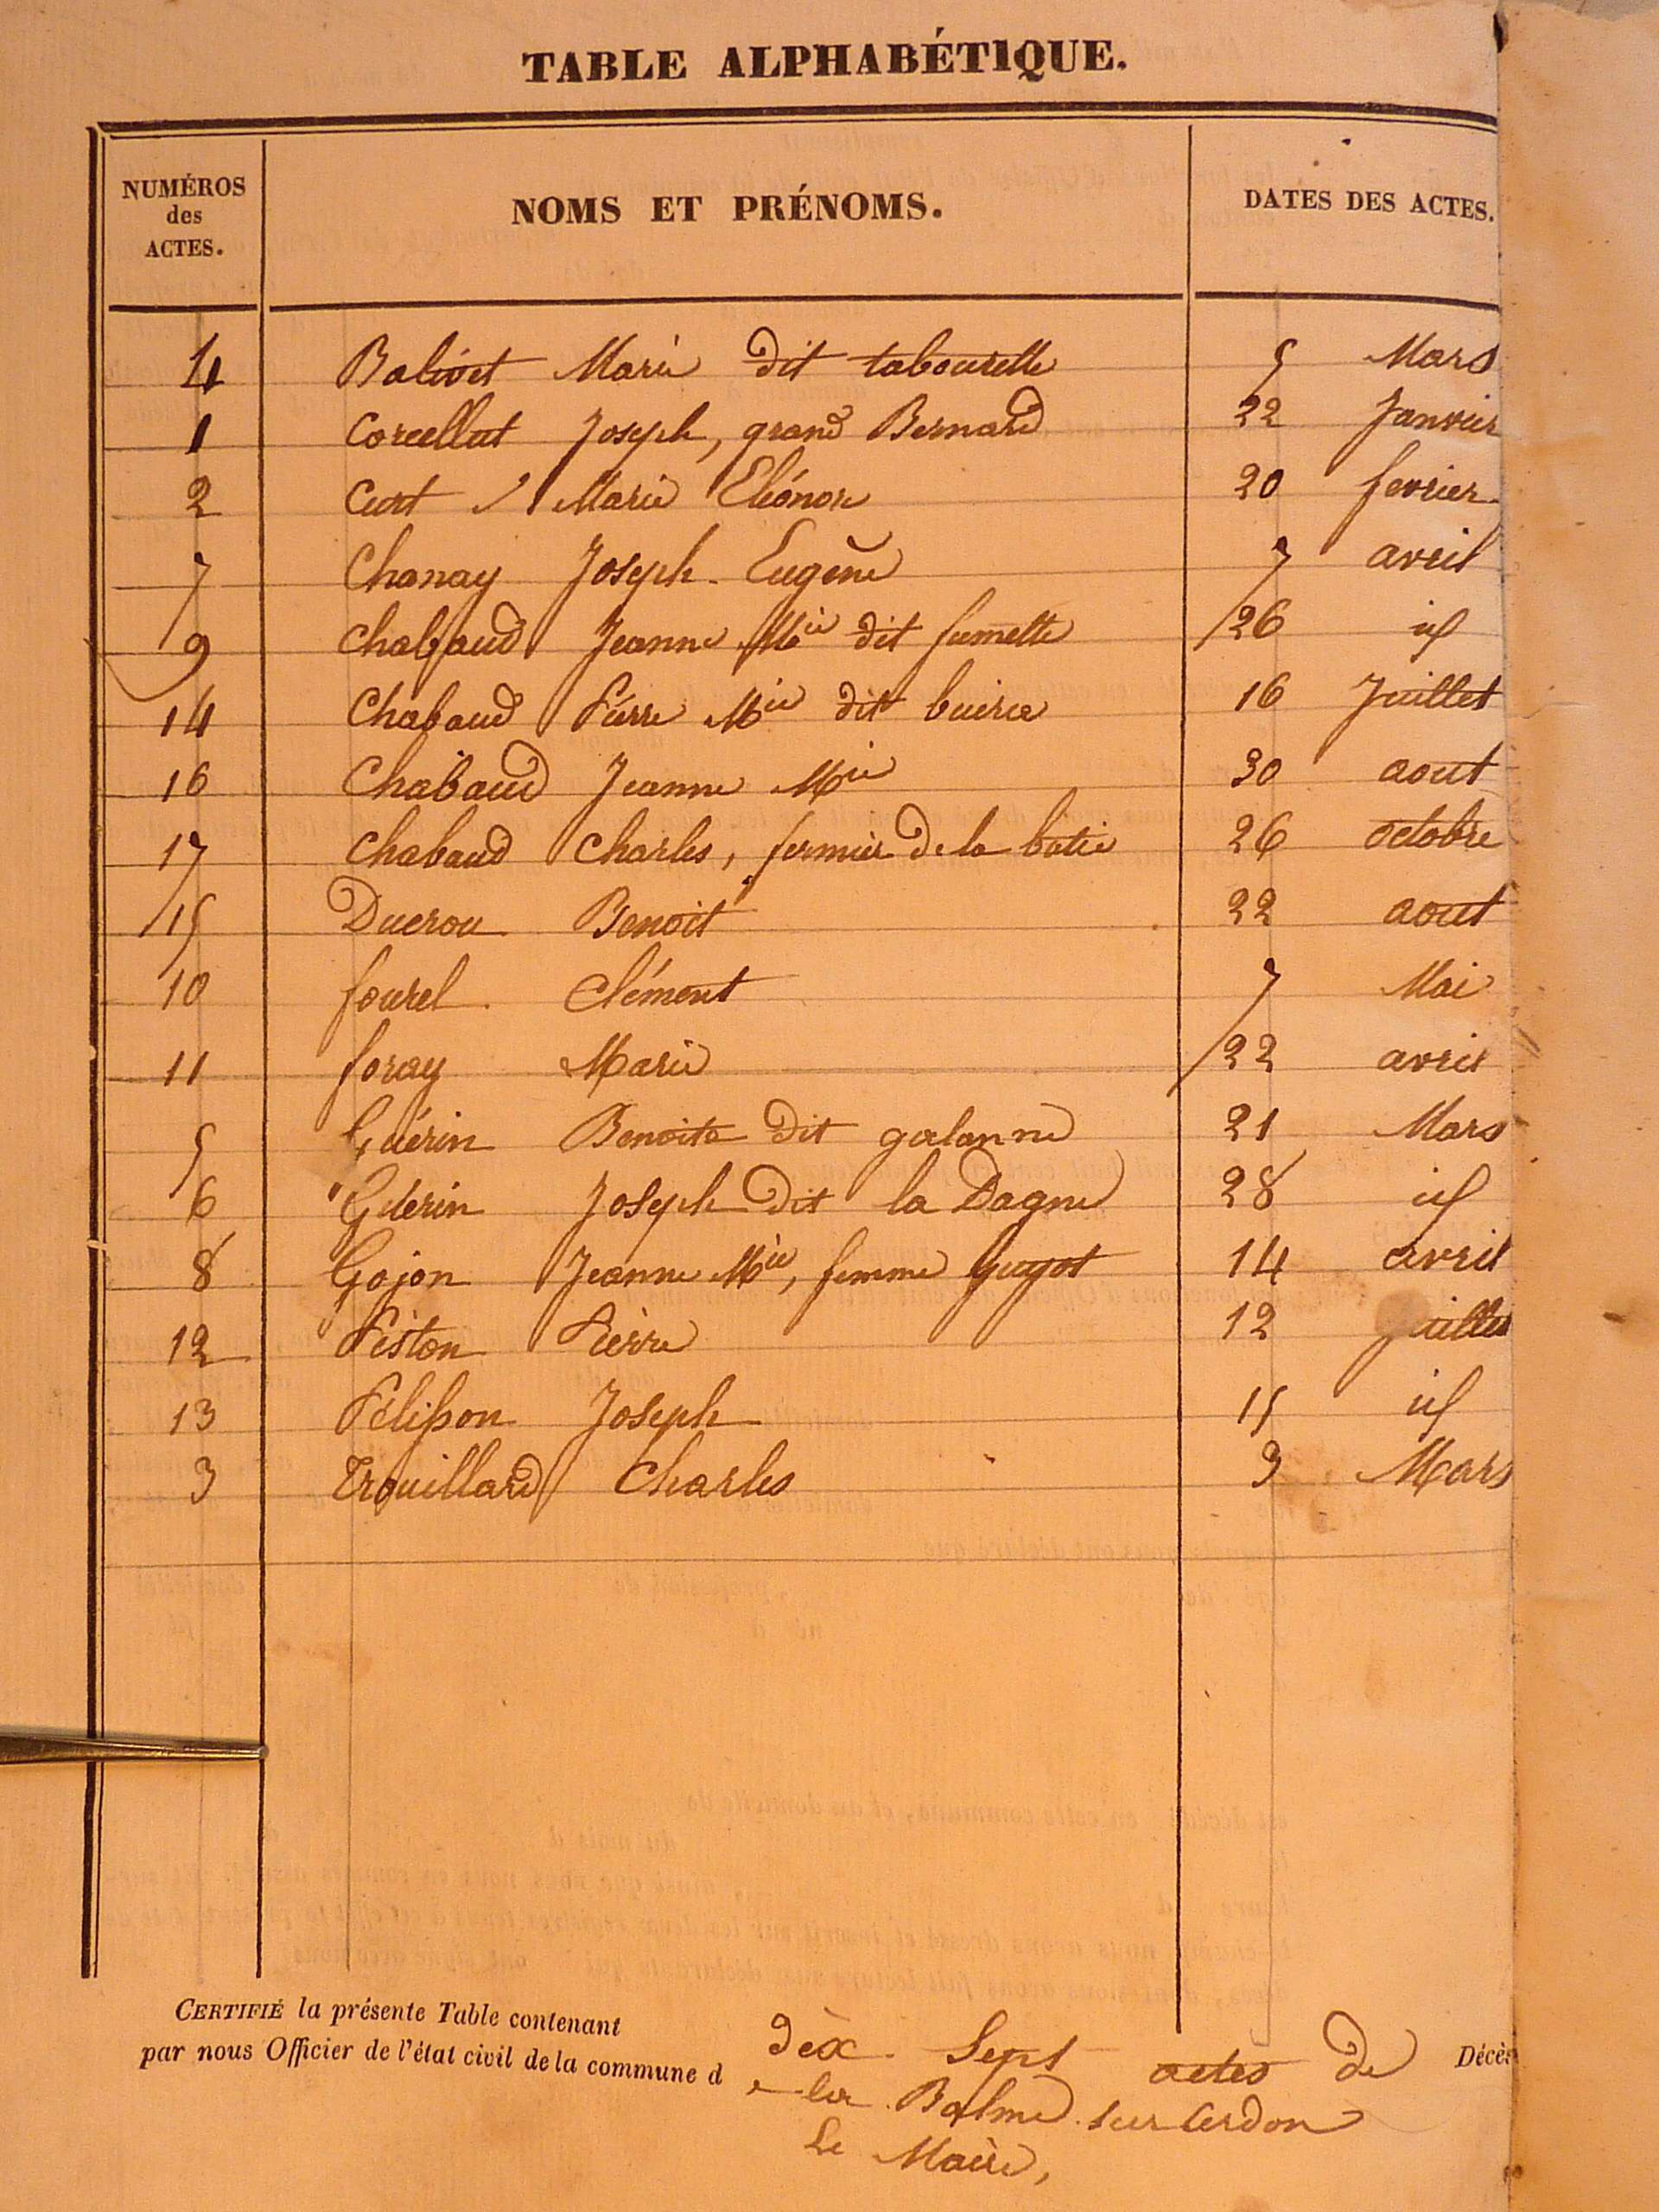 TABLE ALPHABÉTIQUE.
NUMÉROS des ACTES. NOMS ET PRÉNOMS. DATES DES ACTES.
4 Balivet Marie dit tabourette 5 Mars
1 Corcellut Joseph, grand Bernard 22 Janvier
2 Curt Marie Eléonore 20 fevrier
7 Chanay Joseph-Eugène 7 avril
9 Chabaud Jeanne Mie dit fumette 26 id
14 Chabaud Pierre Mie dit 16 Juillet
16 Chabaud Jeanne Mie 30 aout
17 Chabaud Charles, fermier de la batie 26 octobre
15 Ducrou Benoit 22 aout
10 fourel Clément 7 Mai
11 foray Marie 22 avril
5 Guérin Benoite dit galanne 21 Mars
6 Guérin Joseph dit la Dagne 28 id
8 Gojon Jeanne Mie, femme Guyot 14 avril
12 Piston Pierre 12 Juillet
13 Pélisson Joseph 15 id
3 Trouillard Charles 9 Mars
CERTIFIÉ la présente Table contenant dix-Sept actes de Décès
par nous Officier de l'état civil de la commune de la Balme sur Cerdon
Le Maire,